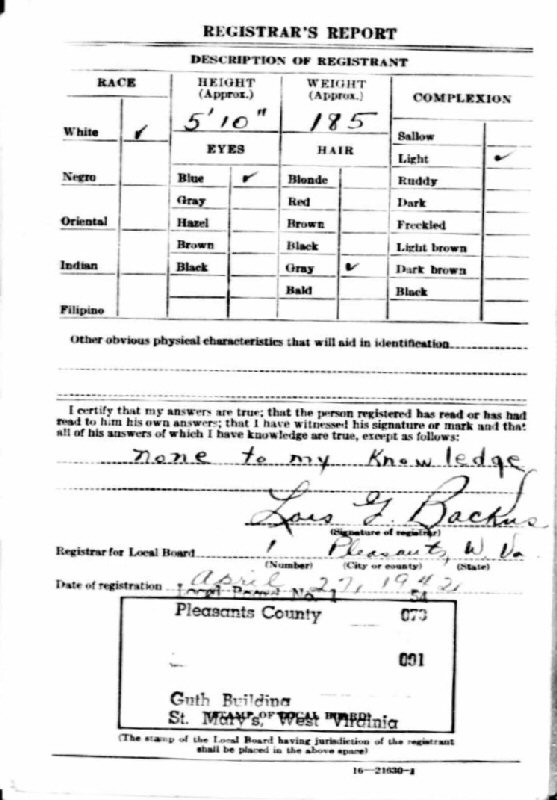 REGISTRAR'S REPORT
DESCRIPTION OF REGISTRANT
RACE HEIGHT (Approx.) WEIGHT (Approx.) COMPLEXION
5' 10" 185
White ✓ Sallow
EYES HAIR
Light ✓
Negro Blue ✓ Blonde Ruddy
Gray Red Dark
Oriental Hazel Brown Freckled
Brown Black Light brown
Indian Black Gray ✓ Dark brown
Bald Black
Filipino
Other obvious physical characteristics that will aid in identification
I certify that my answers are true; that the person registered has read or has had
read to him his own answers; that I have witnessed his signature or mark and that
all of his answers of which I have knowledge are true, except as follows:
None to my Knowledge
Lois G. Backus
(Signature of registrar)
Registrar for Local Board 1 Pleasants, W. Va.
(Number) (City or county) (State)
Date of registration April 27, 1942
Local Board No. 1 54
Pleasants County 073
001
Guth Building
St. Mary's, West Virginia
(STAMP OF LOCAL BOARD)
(The stamp of the Local Board having jurisdiction of the registrant
shall be placed in the above space)
16—21630-1